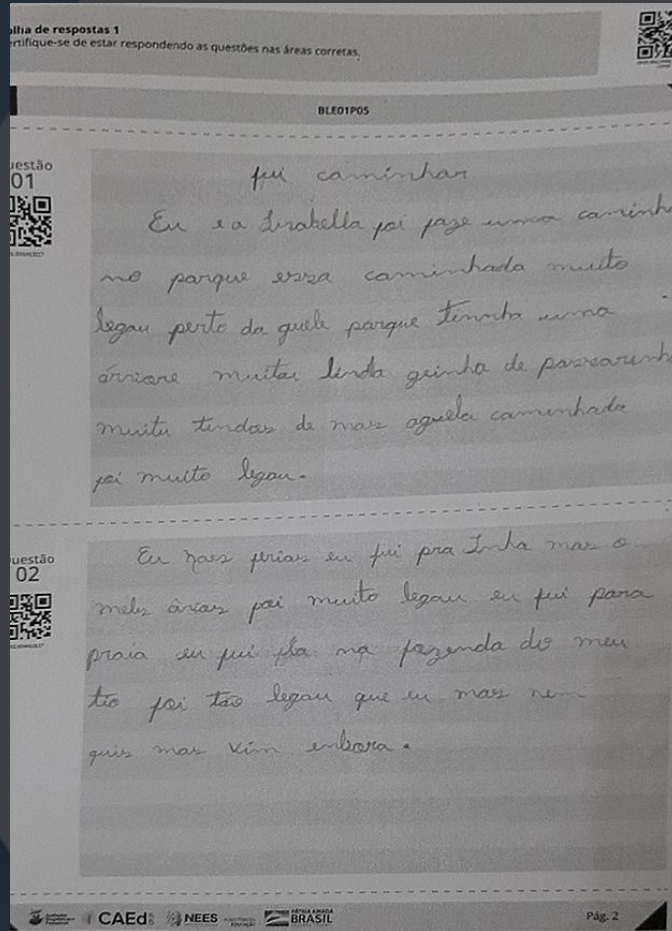 olha de respostas 1
ertifique-se de estar respondendo as questões nas áreas corretas.
BLE01P05
uestão
01
fui caminhar
Eu e a Isabella foi faze uma caminh
no parque essa caminhada muito
legau perto da quele parque tinnha uma
árvore muitas linda geinho de passarinh
muitu tindas de mas aquela caminhada
foi muito legau.
uestão
02
Eu nas férias eu fui pra mas o
foi muito legau eu fui para
praia eu fui na fazenda do meu
tio foi tão legau que eu mas nem
quis mas vim enbora.
CAEd
NEES
PÁTRIA AMADA
BRASIL
Pág. 2